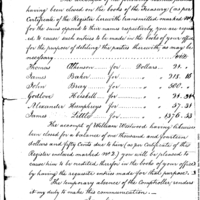 having been closed on the books of the Treasury (as per
Certificate of the Register herewith transmitted, marked No 1)
for the sums opposed to their names respectively, you are request-
ed to cause such entries to be made on the books of your office
for the purpose of debiting the parties therewith, as may be
necessary
Thomas for Dollars
James Baker for 718.
John Bray for 500.
Godlove for 31.
Alexander Humphrey for 37. 31
James Little for 1376. 33
The account of William having likewise
been closed for a balance of one thousand and fourteen
dollars and fifty Cents due to him (as per Certificate of the
Register marked No 2) you will be pleased to
cause him to be credited therefor in the books of your office
by having the requisite entries made for that purpose.
The temporary absence of the Comptroller renders
it my duty to make this communication